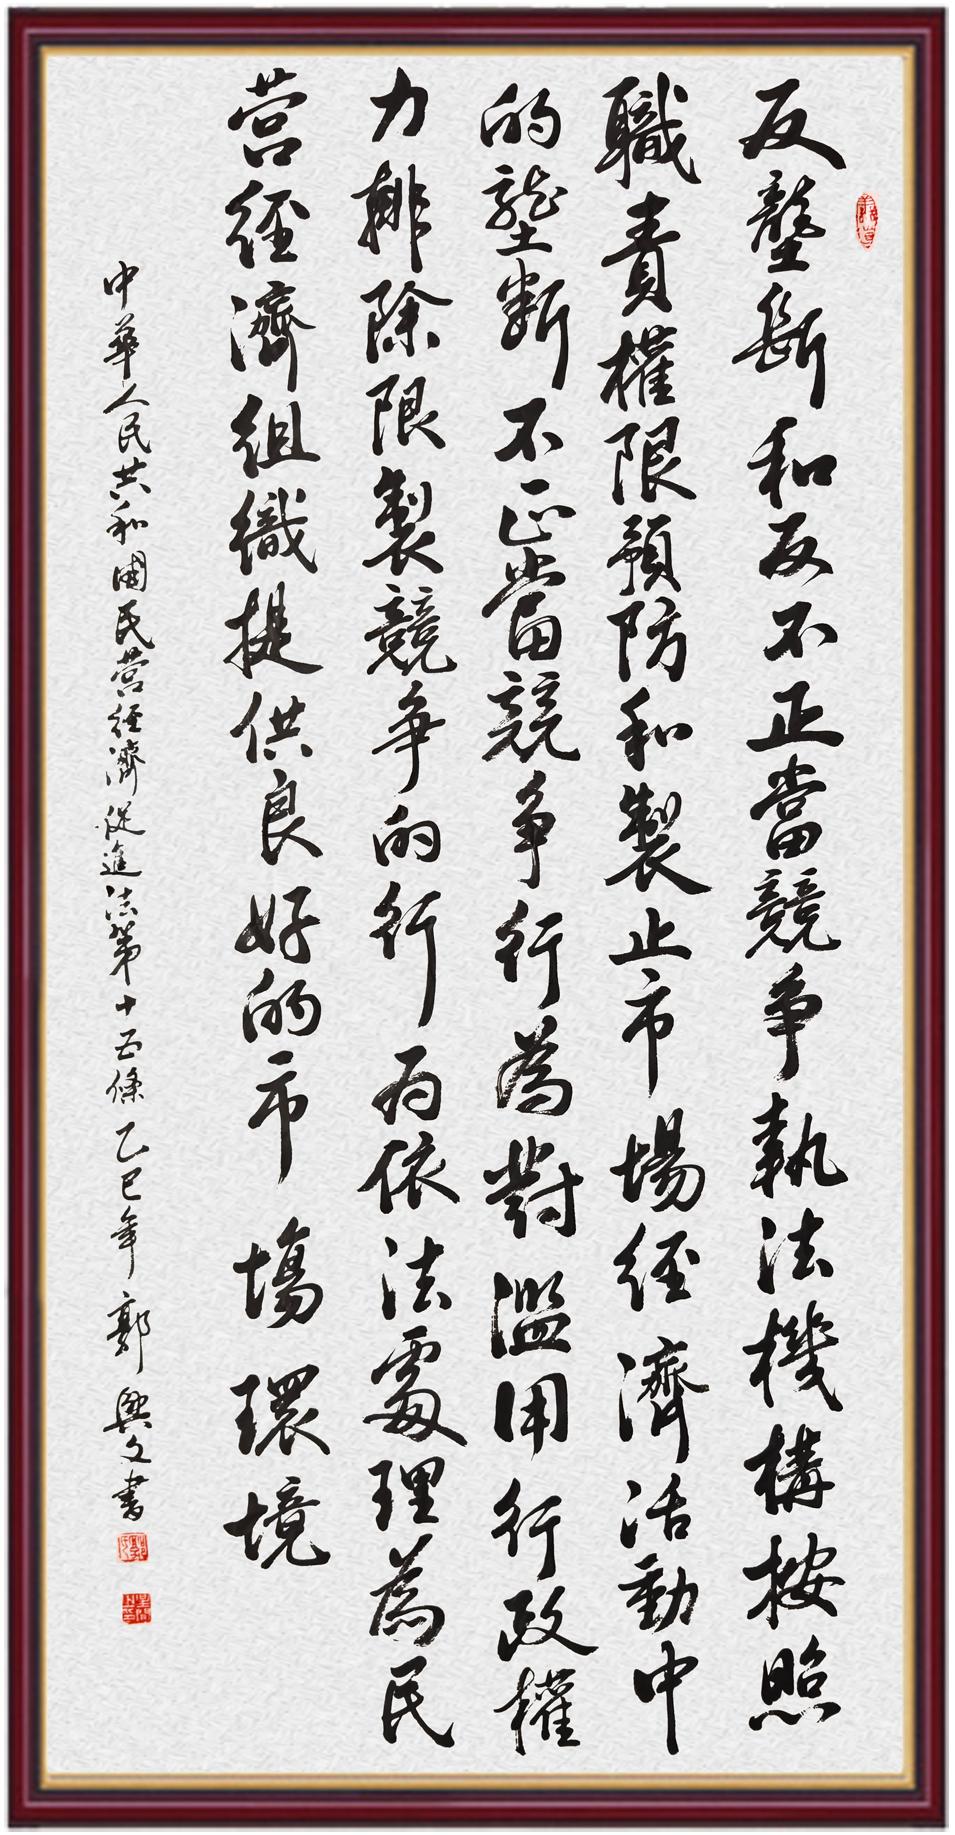 反壟斷和反不正當競争執法機構按照
職責權限預防和製止市場經濟活動中
的壟斷不正當競争行為對濫用行政權
力排除限製競争的行为依法處理為民
营經濟組織提供良好的市場環境
中華人民共和國民营經濟促進法第十五條乙巳年郭興文書